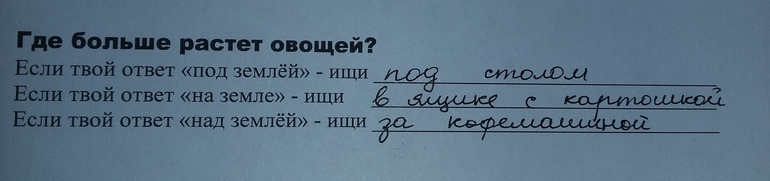 Где больше растет овощей?
Если твой ответ «под землёй» - ищи под столом
Если твой ответ «на земле» - ищи в ящике с картошкой
Если твой ответ «над землёй» - ищи за кофемашиной